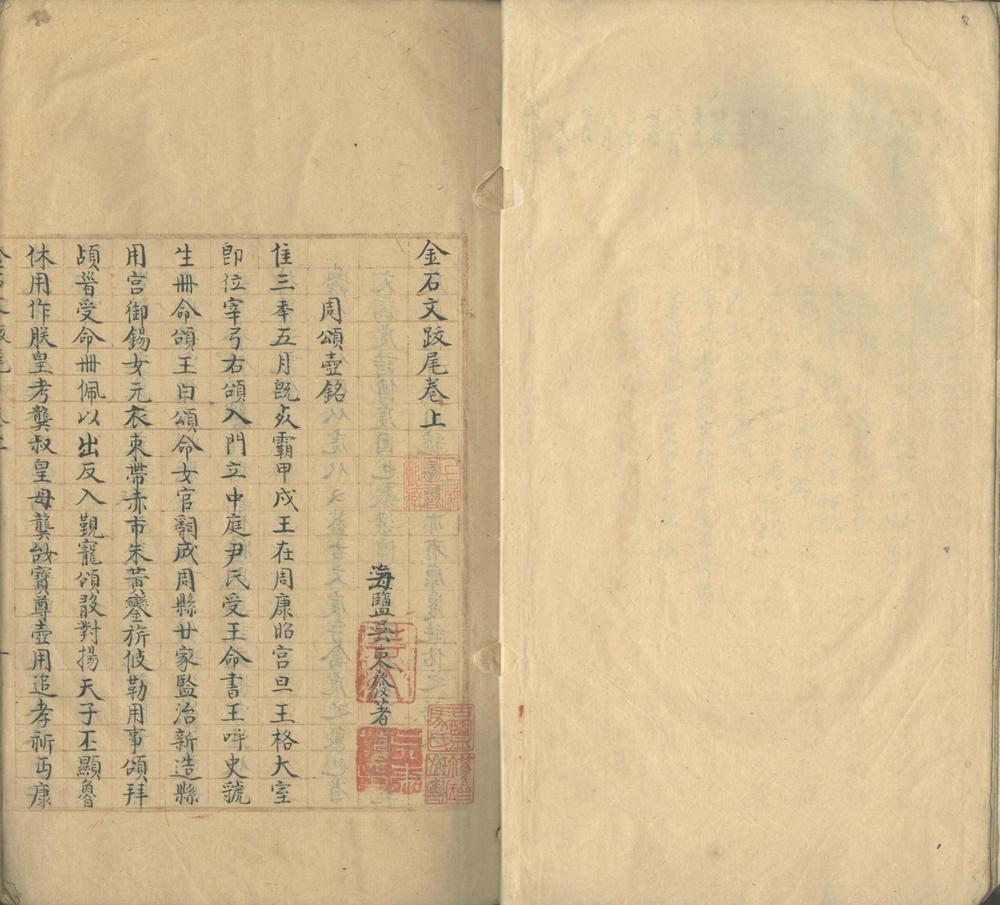 金石文跋尾卷上
海鹽吳東發著
周頌壺銘
隹三年五月旣死霸甲戌王在周康昭宮旦王格大室
卽位宰弓右頌入門立中庭尹氏受王命書王呼史虢
生冊命頌王曰頌命女官𤔲成周縣廿家監治新造縣
用宮御錫女元衣朿帶赤巿朱黃鑾旂攸勒用事頌拜
䭫首受命冊佩以出反入覲寵頌敢對揚天子丕顯魯
休用作朕皇考龔叔皇母龔姒寶尊壺用追孝祈丏康